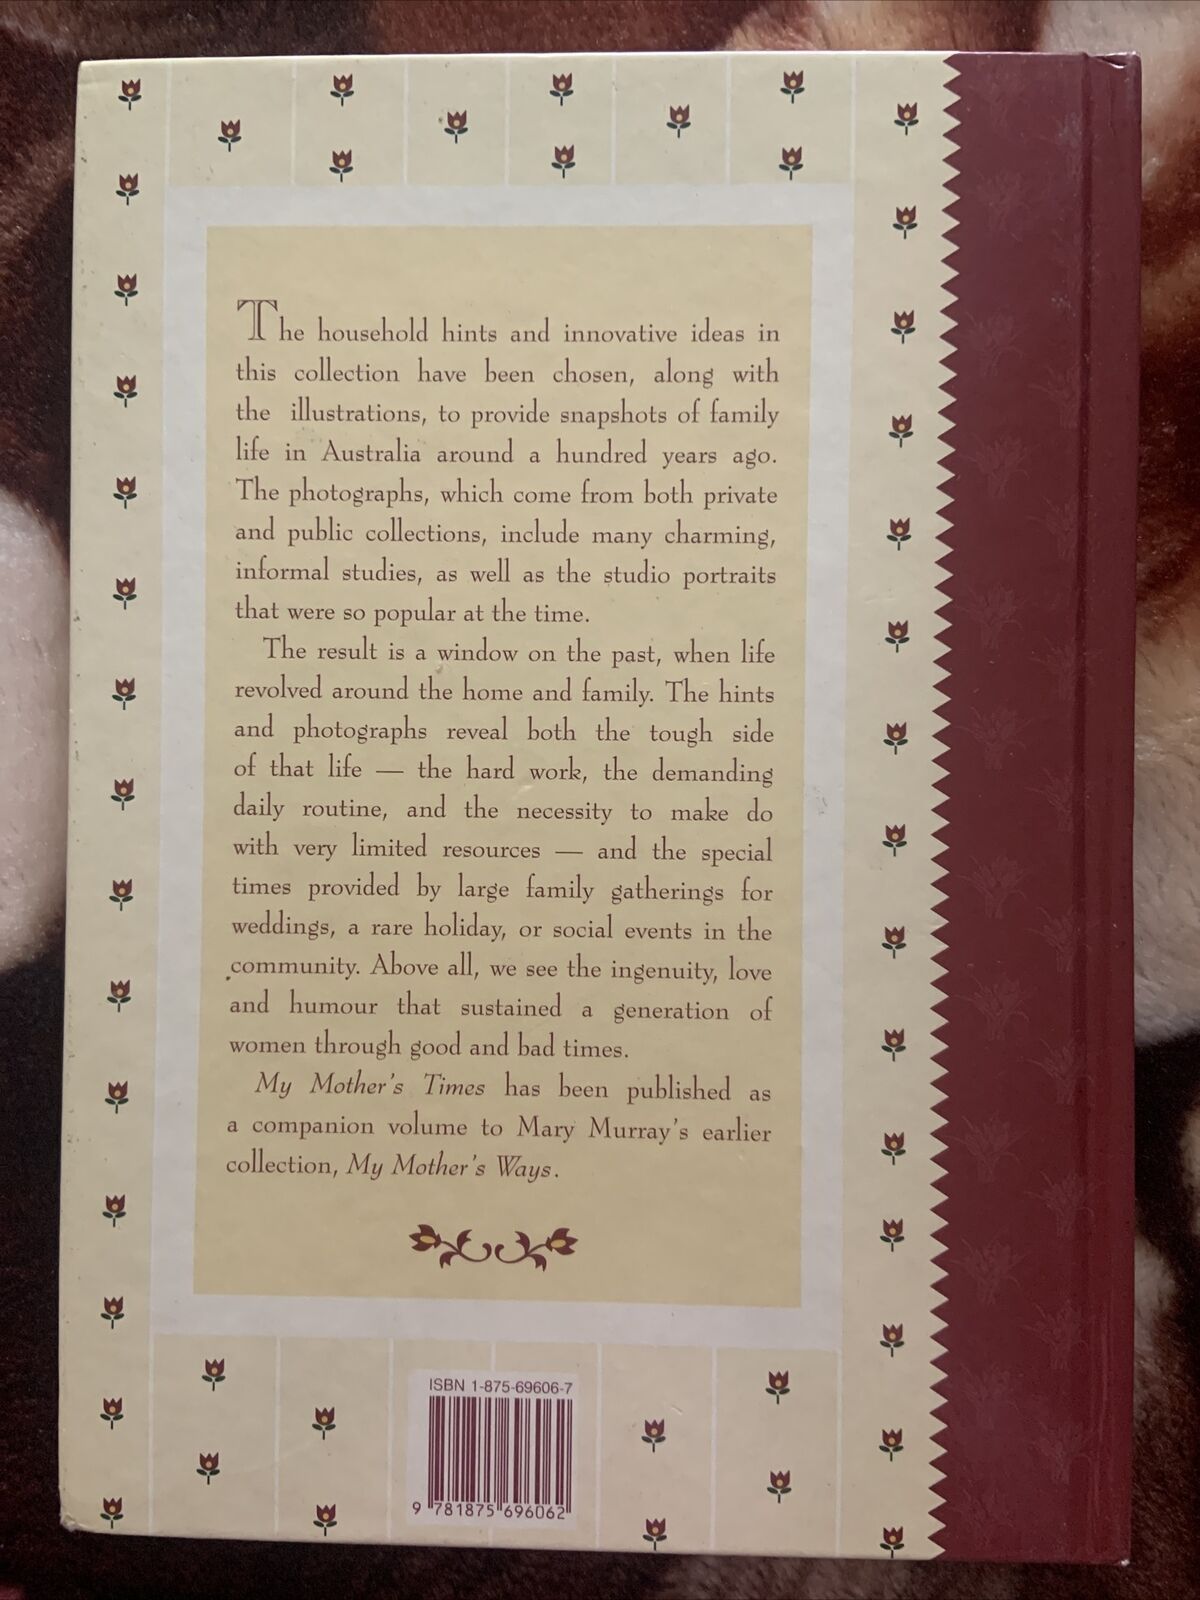 The household hints and innovative ideas in
this collection have been chosen, along with
the illustrations, to provide snapshots of family
life in Australia around a hundred years ago.
The photographs, which come from both private
and public collections, include many charming,
informal studies, as well as the studio portraits
that were so popular at the time.
The result is a window on the past, when life
revolved around the home and family. The hints
and photographs reveal both the tough side
of that life — the hard work, the demanding
daily routine, and the necessity to make do
with very limited resources — and the special
times provided by large family gatherings for
weddings, a rare holiday, or social events in the
community. Above all, we see the ingenuity, love
and humour that sustained a generation of
women through good and bad times.
My Mother's Times has been published as
a companion volume to Mary Murray's earlier
collection, My Mother's Ways.
ISBN 1-875-69606-7
9 781875 696062